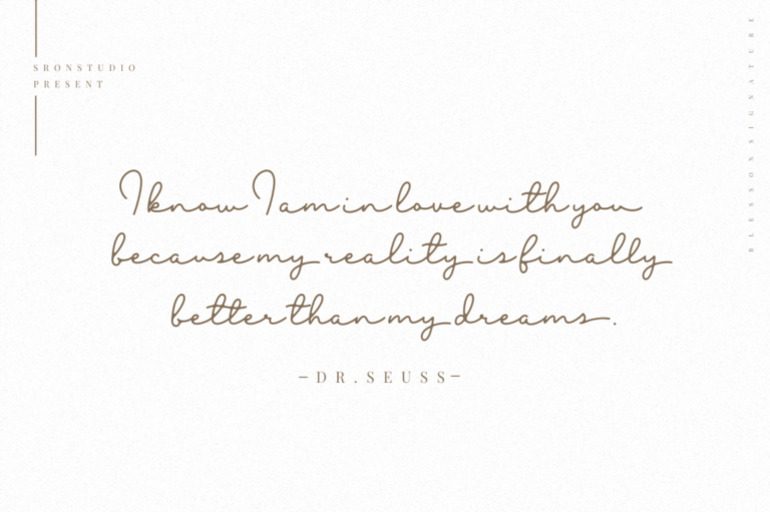 SRONSTUDIO
PRESENT
I know I am in love with you
because my reality is finally
better than my dreams.
–DR.SEUSS–
BLESSON SIGNATURE